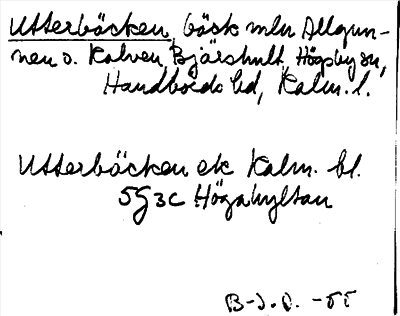 Utterbäcken, bäck mln Allgun-
nen o. Kalven, Bjärshult, Högsby sn,
Handbörds hd, Kalm. l.
Utterbäcken ek Kalm. bl.
5G3c Högahyltan
B-J.O. -55